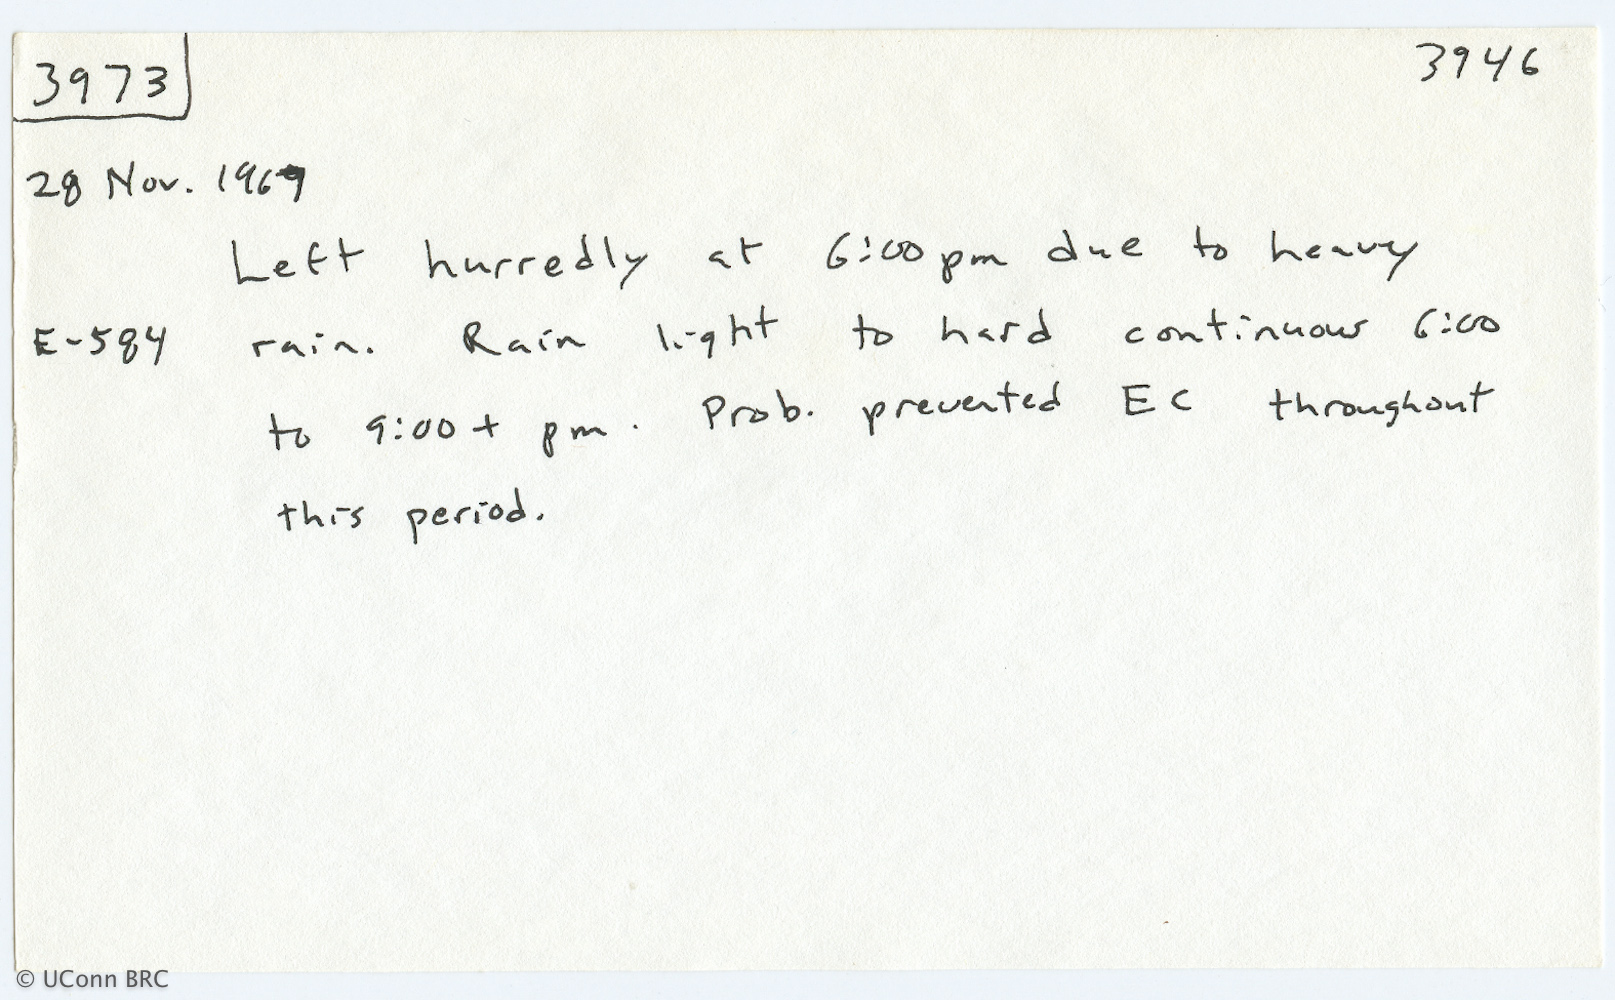 3973
3946
28 Nov. 1969
Left hurredly at 6:00 pm due to heavy
E-584 rain. Rain light to hard continuous 6:00
to 9:00+ pm. Prob. prevented EC throughout
this period.
© UConn BRC